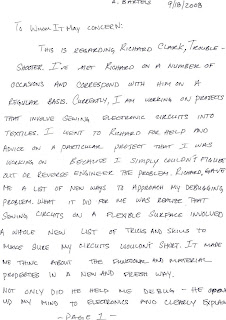 A. BARTELS 9/18/2008
TO WHOM IT MAY CONCERN:
THIS IS REGARDING RICHARD CLARK, TROUBLE-
SHOOTER I'VE MET RICHARD ON A NUMBER OF
OCCASIONS AND CORRESPOND WITH HIM ON A
REGULAR BASIS. CURRENTLY, I AM WORKING ON PROJECTS
THAT INVOLVE SEWING ELECTRONIC CIRCUITS INTO
TEXTILES. I WENT TO RICHARD FOR HELP AND
ADVICE ON A PARTICULAR PROJECT THAT I WAS
WORKING ON BECAUSE I SIMPLY COULDN'T FIGURE
OUT OR REVERSE ENGINEER THE PROBLEM. RICHARD, GAVE
ME A LOT OF NEW WAYS TO APPROACH MY DEBUGGING
PROBLEM. WHAT IT DID FOR ME WAS REALIZE THAT
SEWING CIRCUITS ON A FLEXIBLE SURFACE INVOLVED
A WHOLE NEW LIST OF TRICKS AND SKILLS TO
MAKE SURE MY CIRCUITS WOULDN'T SHORT. IT MADE
ME THINK ABOUT THE FUNCTIONAL AND MATERIAL
PROPERTIES IN A NEW AND FRESH WAY.
NOT ONLY DID HE HELP ME DEBUG - HE OPEN
UP MY MIND TO ELECTRONICS AND CLEARLY EXPLAIN
- PAGE 1 -